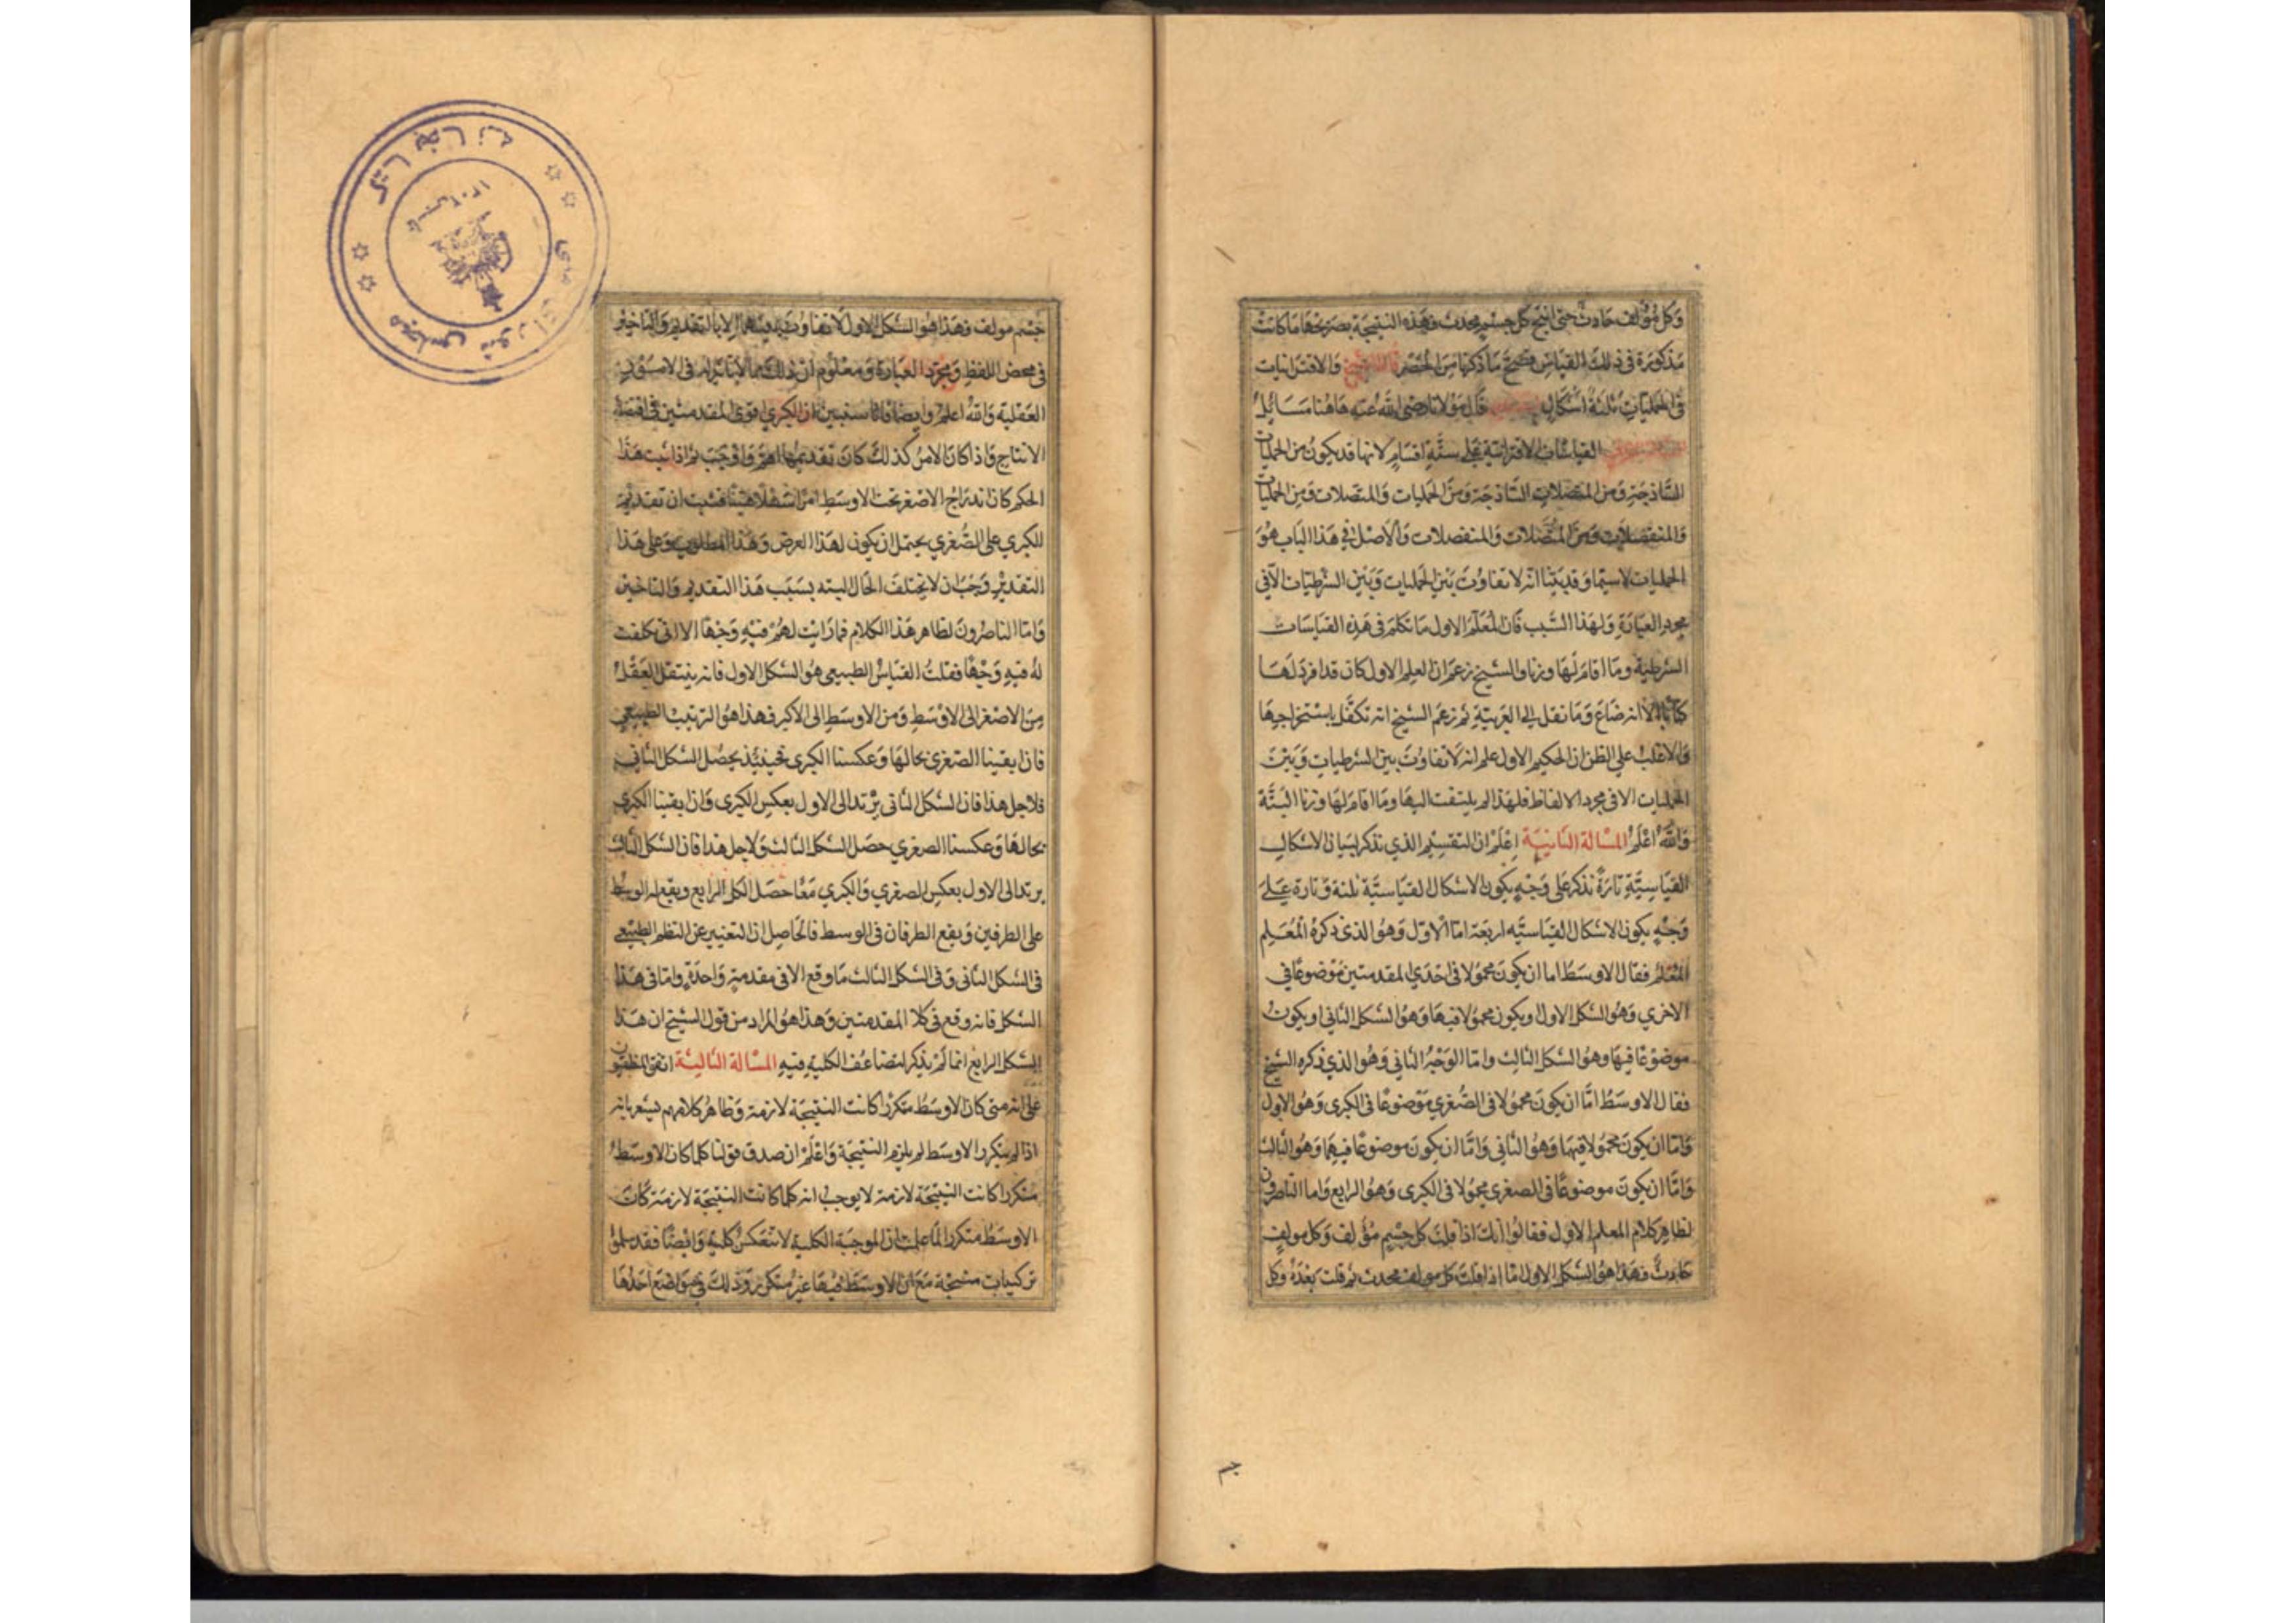 وكل مؤلف حادث حتى انتج كل جسم محدث وهذه النتيجة بصريحها ما كانت
مذكورة في ذلك القياس فصح ما ذكرنا من الحصر قال الشيخ والاقترانيات
في الحمليات ثلثة اشكال قال مولانا رضي الله عنه هاهنا مسائل
القياسات الاقترانية على ستة اقسام لانها قد يكون من الحمليات
الساذجة ومن المتصلات الساذجة ومن الحمليات والمتصلات ومن الحمليات
والمنفصلات ومن المتصلات والمنفصلات والاصل في هذا الباب هو
الحمليات لاسيما وقد بينا انه لا تفاوت بين الحمليات وبين الشرطيات الا في
مجرد العبارة ولهذا السبب فان المعلم الاول ما تكلم في هذه القياسات
الشرطية وما اقام لها وزنا والشيخ زعم ان العلم الاول كان قد افرد لها
كتابا الا انه ضاع وما نقل الى العربية ثم زعم الشيخ انه تكفل باستخراجها
والاغلب على الظن ان الحكيم الاول علم انه لا تفاوت بين الشرطيات وبين
الحمليات الا في مجرد الالفاظ فلهذا لم يلتفت اليها وما اقام لها وزنا البتة
والله اعلم المسالة الثانية اعلم ان التقسيم الذي نذكر لبيان الاشكال
القياسية تارة نذكر على وجه يكون الاشكال القياسية ثلثة وتارة على
وجه يكون الاشكال القياسيه اربعة اما الاول وهو الذي ذكره المعلم
المعلم فقال الاوسط اما ان يكون محمولا في احدي المقدمتين موضوعا في
الاخري وهو الشكل الاول او يكون محمولا فيها وهو الشكل الثاني او يكون
موضوعا فيها وهو الشكل الثالث واما الوجه الثاني وهو الذي ذكره الشيخ
فقال الاوسط اما ان يكون محمولا في الصغري موضوعا في الكبرى وهو الاول
واما ان يكون محمولا فيهما وهو الثاني واما ان يكون موضوعا فيهما وهو الثالث
واما ان يكون موضوعا في الصغرى محمولا في الكبرى وهو الرابع واما الناصرون
لظاهر كلام المعلم الاول فقالوا انك اذا قلت كل جسم مؤلف وكل مولف
حادث فهذا هو الشكل الاول اما اذا قلت كل مولف محدث ثم قلت بعده وكل
جسم مولف فهذا هو الشكل الاول لا تفاوت بينهما الا بالتقديم والتاخير
في محض اللفظ ومجرد العبارة ومعلوم ان ذلك مما لا تاثير له في الامور
العقلية والله اعلم وايضا فانا سنبين ان الكبري اقوى المقدمتين في اقتضاء
الانتاج واذا كان الامر كذلك كان تقديمها اهم واوجب ثم اذا ثبت هذا
الحكم كان اندراج الاصغر تحت الاوسط امرا سهلا هينا فثبت ان تقديم
الكبري على الصغري يحتمل ان يكون لهذا الغرض وهذا المطلوب وعلى هذا
التقدير وجب ان لا يختلف الحال البته بسبب هذا التقديم والتاخير
واما الناصرون لظاهر هذا الكلام فما رايت لهم فيه وجها الا اني تكلفت
له فيه وجها فقلت القياس الطبيعي هو الشكل الاول فانه ينتقل العقل
من الاصغر الى الاوسط ومن الاوسط الى الاكبر فهذا هو الترتيب الطبيعي
فان ابقينا الصغرى بحالها وعكسنا الكبرى فحينئذ يحصل الشكل الثاني
فلاجل هذا فان الشكل الثاني يرتد الى الاول بعكس الكبرى وان ابقينا الكبرى
بحالها وعكسنا الصغري حصل الشكل الثالث ولاجل هذا فان الشكل الثالث
يرتد الى الاول بعكس الصغري والكبري معا حصل الكل الرابع ويقع له الوسط
على الطرفين ويقع الطرفان في الوسط فالحاصل ان التغيير عن النظم الطبيعي
في الشكل الثاني وفي الشكل الثالث ما وقع الا في مقدمة واحدة واما في هذا
الشكل فانه وقع في كلا المقدمتين وهذا هو المراد من قول الشيخ ان هذا
الشكل الرابع انما لم يذكر لتضاعف الكلية فيه المسالة الثالثة اتفق المنطقيون
على انه متى كان الاوسط متكررا كانت النتيجة لازمة وظاهر كلامهم يشعر بانه
اذا لم يتكرر الاوسط لم يلزم النتيجة واعلم ان صدق قولنا كلما كان الاوسط
متكررا كانت النتيجة لازمة لا يوجب انه كلما كانت النتيجة لازمة كان
الاوسط متكررا لما علمت ان الموجبة الكلية لا تنعكس كلية وايضا فقد سلموا
تركيبات منتجة مع ان الاوسط فيها غير متكرر وذلك في مواضع احدها